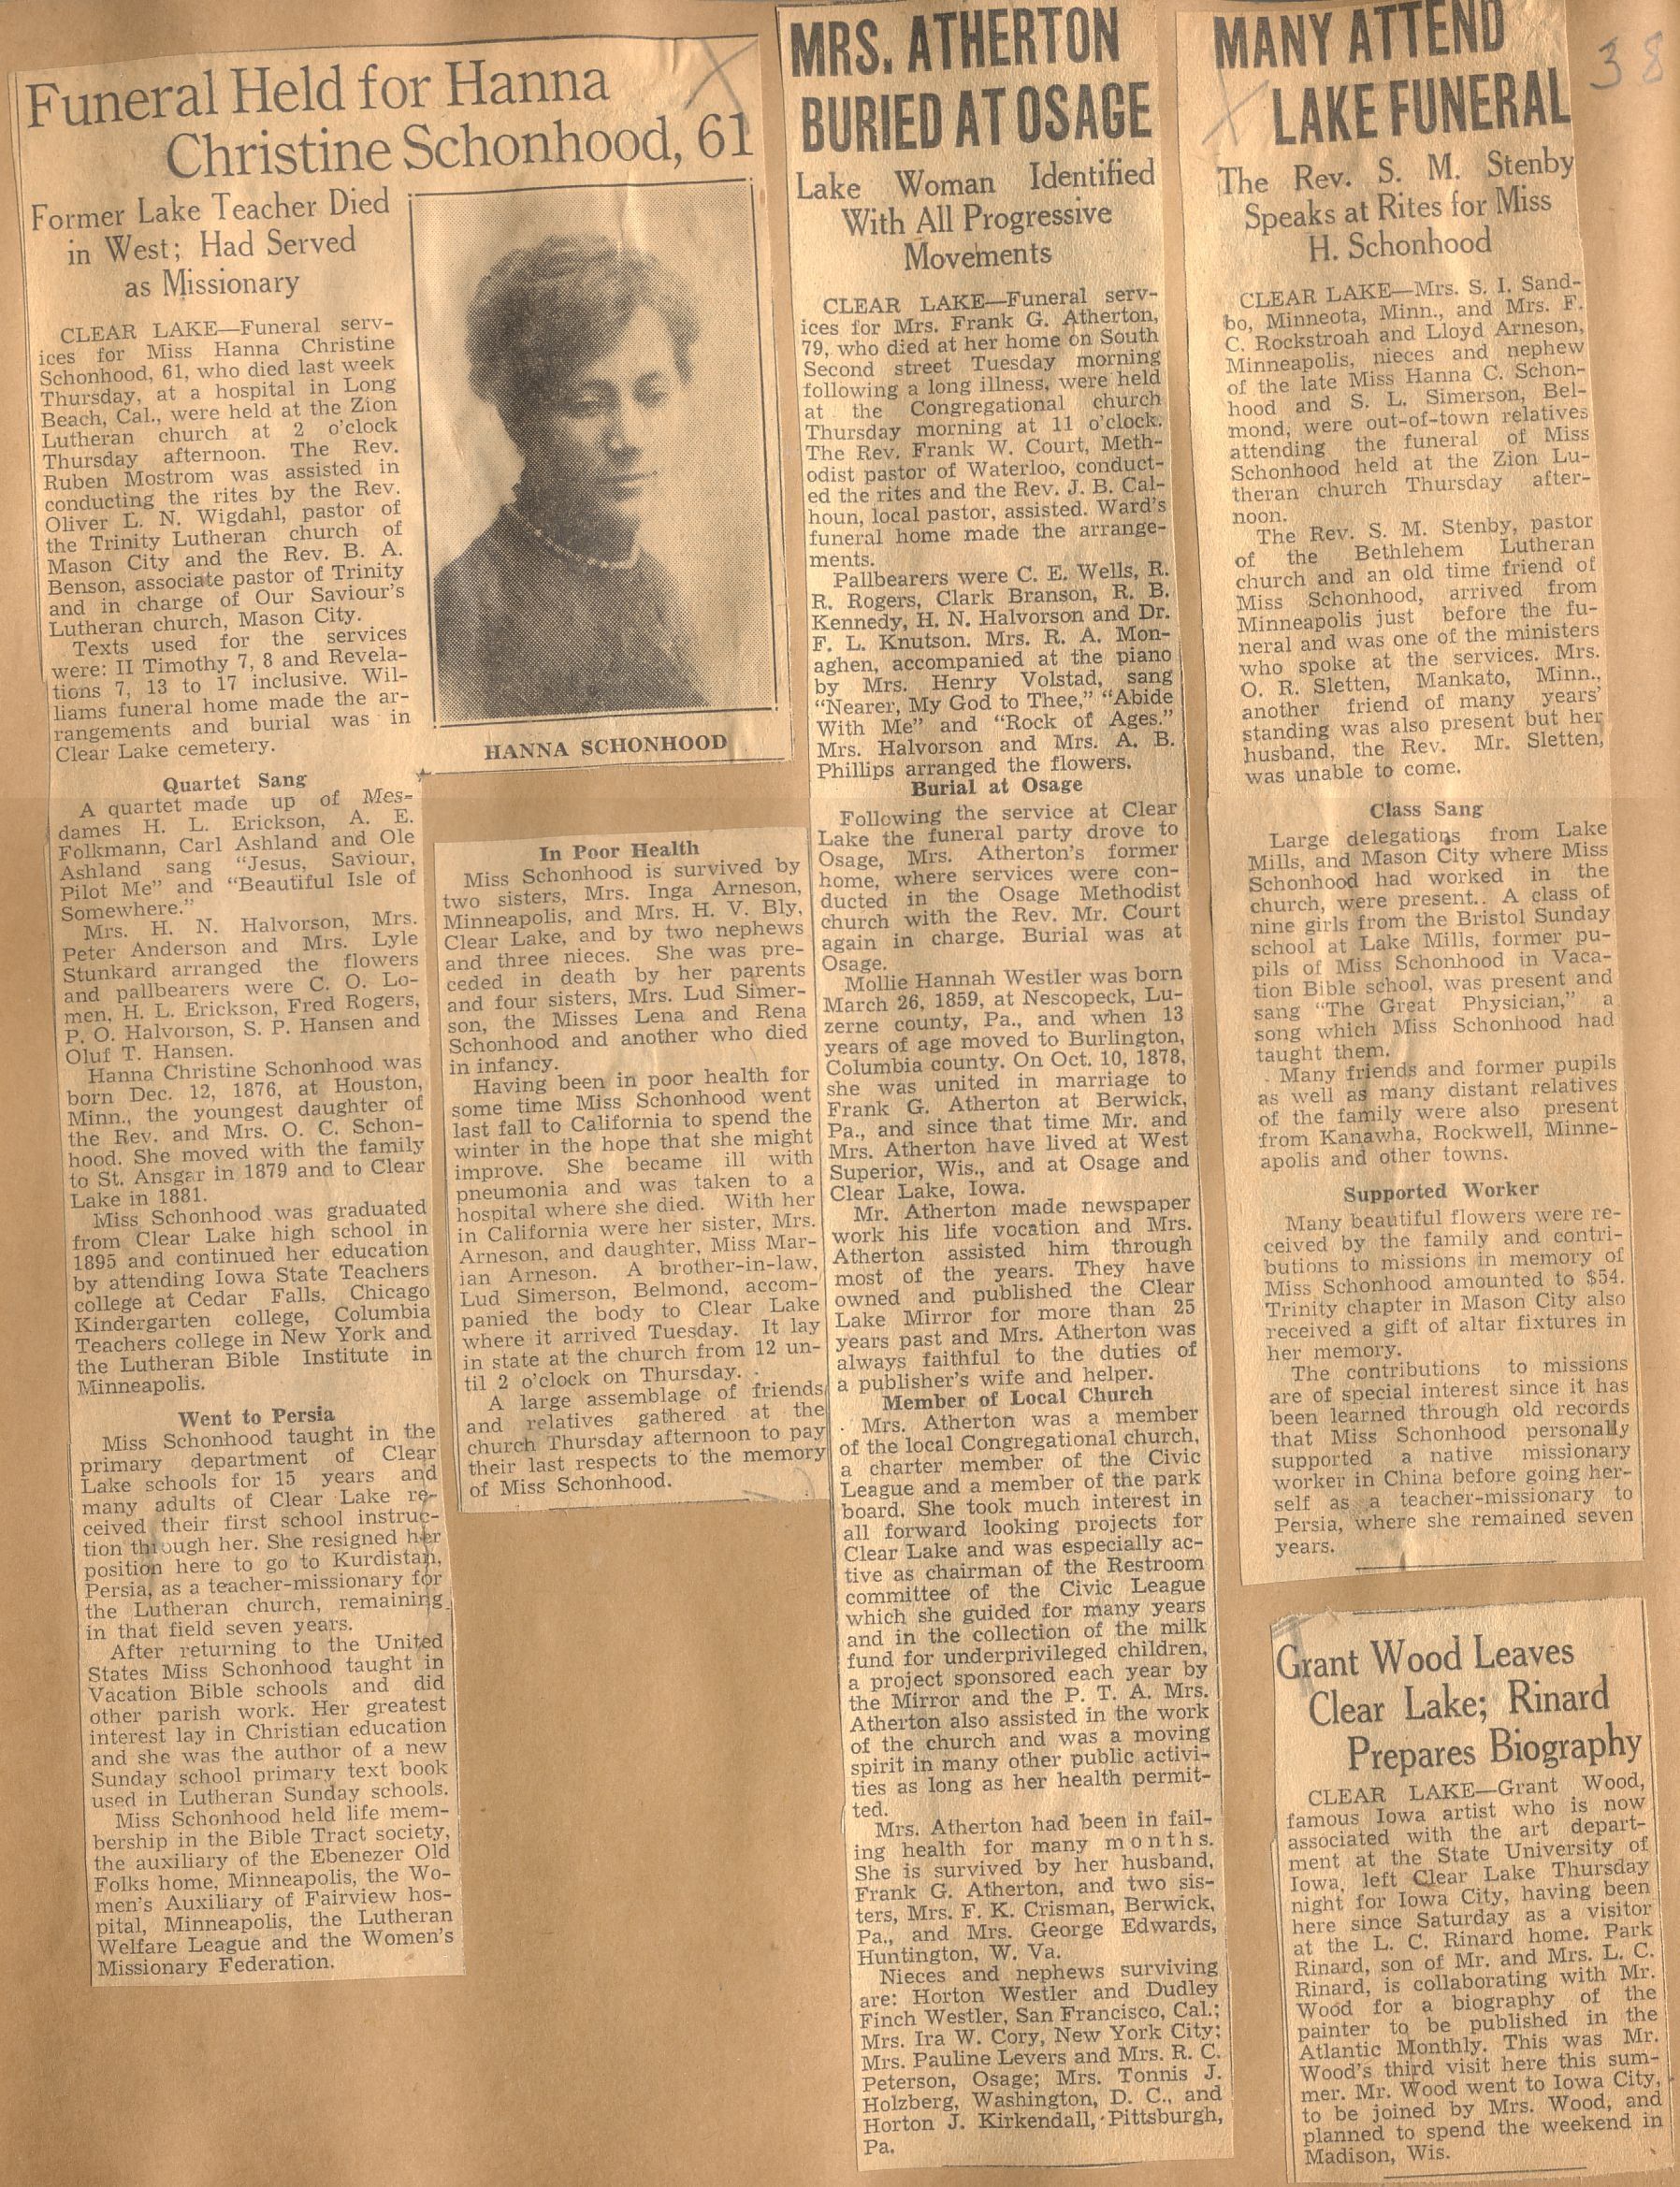 38
Funeral Held for Hanna
Christine Schonhood, 61
Former Lake Teacher Died
in West; Had Served
as Missionary
CLEAR LAKE—Funeral serv-
ices for Miss Hanna Christine
Schonhood, 61, who died last week
Thursday, at a hospital in Long
Beach, Cal., were held at the Zion
Lutheran church at 2 o'clock
Thursday afternoon. The Rev.
Ruben Mostrom was assisted in
conducting the rites by the Rev.
Oliver L. N. Wigdahl, pastor of
the Trinity Lutheran church of
Mason City and the Rev. B. A.
Benson, associate pastor of Trinity
and in charge of Our Saviour's
Lutheran church, Mason City.
Texts used for the services
were: II Timothy 7, 8 and Revela-
tions 7, 13 to 17 inclusive. Wil-
liams funeral home made the ar-
rangements and burial was in
Clear Lake cemetery.
Quartet Sang
A quartet made up of Mes-
dames H. L. Erickson, A. E.
Folkmann, Carl Ashland and Ole
Ashland sang "Jesus, Saviour,
Pilot Me" and "Beautiful Isle of
Somewhere."
Mrs. H. N. Halvorson, Mrs.
Peter Anderson and Mrs. Lyle
Stunkard arranged the flowers
and pallbearers were C. O. Lo-
men, H. L. Erickson, Fred Rogers,
P. O. Halvorson, S. P. Hansen and
Oluf T. Hansen.
Hanna Christine Schonhood was
born Dec. 12, 1876, at Houston,
Minn., the youngest daughter of
the Rev. and Mrs. O. C. Schon-
hood. She moved with the family
to St. Ansgar in 1879 and to Clear
Lake in 1881.
Miss Schonhood was graduated
from Clear Lake high school in
1895 and continued her education
by attending Iowa State Teachers
college at Cedar Falls, Chicago
Kindergarten college, Columbia
Teachers college in New York and
the Lutheran Bible Institute in
Minneapolis.
Went to Persia
Miss Schonhood taught in the
primary department of Clear
Lake schools for 15 years and
many adults of Clear Lake re-
ceived their first school instruc-
tion through her. She resigned her
position here to go to Kurdistan,
Persia, as a teacher-missionary for
the Lutheran church, remaining
in that field seven years.
After returning to the United
States Miss Schonhood taught in
Vacation Bible schools and did
other parish work. Her greatest
interest lay in Christian education
and she was the author of a new
Sunday school primary text book
used in Lutheran Sunday schools.
Miss Schonhood held life mem-
bership in the Bible Tract society,
the auxiliary of the Ebenezer Old
Folks home, Minneapolis, the Wo-
men's Auxiliary of Fairview hos-
pital, Minneapolis, the Lutheran
Welfare League and the Women's
Missionary Federation.
HANNA SCHONHOOD
In Poor Health
Miss Schonhood is survived by
two sisters, Mrs. Inga Arneson,
Minneapolis, and Mrs. H. V. Bly,
Clear Lake, and by two nephews
and three nieces. She was pre-
ceded in death by her parents
and four sisters, Mrs. Lud Simer-
son, the Misses Lena and Rena
Schonhood and another who died
in infancy.
Having been in poor health for
some time Miss Schonhood went
last fall to California to spend the
winter in the hope that she might
improve. She became ill with
pneumonia and was taken to a
hospital where she died. With her
in California were her sister, Mrs.
Arneson, and daughter, Miss Mar-
ian Arneson. A brother-in-law,
Lud Simerson, Belmond, accom-
panied the body to Clear Lake
where it arrived Tuesday. It lay
in state at the church from 12 un-
til 2 o'clock on Thursday.
A large assemblage of friends
and relatives gathered at the
church Thursday afternoon to pay
their last respects to the memory
of Miss Schonhood.
MRS. ATHERTON
BURIED AT OSAGE
Lake Woman Identified
With All Progressive
Movements
CLEAR LAKE—Funeral serv-
ices for Mrs. Frank G. Atherton,
79, who died at her home on South
Second street Tuesday morning
following a long illness, were held
at the Congregational church
Thursday morning at 11 o'clock.
The Rev. Frank W. Court, Meth-
odist pastor of Waterloo, conduct-
ed the rites and the Rev. J. B. Cal-
houn, local pastor, assisted. Ward's
funeral home made the arrange-
ments.
Pallbearers were C. E. Wells, R.
R. Rogers, Clark Branson, R. B.
Kennedy, H. N. Halvorson and Dr.
F. L. Knutson. Mrs. R. A. Mon-
aghen, accompanied at the piano
by Mrs. Henry Volstad, sang
"Nearer, My God to Thee," "Abide
With Me" and "Rock of Ages."
Mrs. Halvorson and Mrs. A. B.
Phillips arranged the flowers.
Burial at Osage
Following the service at Clear
Lake the funeral party drove to
Osage, Mrs. Atherton's former
home, where services were con-
ducted in the Osage Methodist
church with the Rev. Mr. Court
again in charge. Burial was at
Osage.
Mollie Hannah Westler was born
March 26, 1859, at Nescopeck, Lu-
zerne county, Pa., and when 13
years of age moved to Burlington,
Columbia county. On Oct. 10, 1878,
she was united in marriage to
Frank G. Atherton at Berwick,
Pa., and since that time Mr. and
Mrs. Atherton have lived at West
Superior, Wis., and at Osage and
Clear Lake, Iowa.
Mr. Atherton made newspaper
work his life vocation and Mrs.
Atherton assisted him through
most of the years. They have
owned and published the Clear
Lake Mirror for more than 25
years past and Mrs. Atherton was
always faithful to the duties of
a publisher's wife and helper.
Member of Local Church
Mrs. Atherton was a member
of the local Congregational church,
a charter member of the Civic
League and a member of the park
board. She took much interest in
all forward looking projects for
Clear Lake and was especially ac-
tive as chairman of the Restroom
committee of the Civic League
which she guided for many years
and in the collection of the milk
fund for underprivileged children,
a project sponsored each year by
the Mirror and the P. T. A. Mrs.
Atherton also assisted in the work
of the church and was a moving
spirit in many other public activi-
ties as long as her health permit-
ted.
Mrs. Atherton had been in fail-
ing health for many months.
She is survived by her husband,
Frank G. Atherton, and two sis-
ters, Mrs. F. K. Crisman, Berwick,
Pa., and Mrs. George Edwards,
Huntington, W. Va.
Nieces and nephews surviving
are: Horton Westler and Dudley
Finch Westler, San Francisco, Cal.;
Mrs. Ira W. Cory, New York City;
Mrs. Pauline Levers and Mrs. R. C.
Peterson, Osage; Mrs. Tonnis J.
Holzberg, Washington, D. C., and
Horton J. Kirkendall, Pittsburgh,
Pa.
MANY ATTEND
LAKE FUNERAL
The Rev. S. M. Stenby
Speaks at Rites for Miss
H. Schonhood
CLEAR LAKE—Mrs. S. I. Sand-
bo, Minneota, Minn., and Mrs. F.
C. Rockstroah and Lloyd Arneson,
Minneapolis, nieces and nephew
of the late Miss Hanna C. Schon-
hood and S. L. Simerson, Bel-
mond, were out-of-town relatives
attending the funeral of Miss
Schonhood held at the Zion Lu-
theran church Thursday after-
noon.
The Rev. S. M. Stenby, pastor
of the Bethlehem Lutheran
church and an old time friend of
Miss Schonhood, arrived from
Minneapolis just before the fu-
neral and was one of the ministers
who spoke at the services. Mrs.
O. R. Sletten, Mankato, Minn.,
another friend of many years'
standing was also present but her
husband, the Rev. Mr. Sletten,
was unable to come.
Class Sang
Large delegations from Lake
Mills, and Mason City where Miss
Schonhood had worked in the
church, were present.. A class of
nine girls from the Bristol Sunday
school at Lake Mills, former pu-
pils of Miss Schonhood in Vaca-
tion Bible school, was present and
sang "The Great Physician," a
song which Miss Schonhood had
taught them.
Many friends and former pupils
as well as many distant relatives
of the family were also present
from Kanawha, Rockwell, Minne-
apolis and other towns.
Supported Worker
Many beautiful flowers were re-
ceived by the family and contri-
butions to missions in memory of
Miss Schonhood amounted to $54.
Trinity chapter in Mason City also
received a gift of altar fixtures in
her memory.
The contributions to missions
are of special interest since it has
been learned through old records
that Miss Schonhood personally
supported a native missionary
worker in China before going her-
self as a teacher-missionary to
Persia, where she remained seven
years.
Grant Wood Leaves
Clear Lake; Rinard
Prepares Biography
CLEAR LAKE—Grant Wood,
famous Iowa artist who is now
associated with the art depart-
ment at the State University of
Iowa, left Clear Lake Thursday
night for Iowa City, having been
here since Saturday as a visitor
at the L. C. Rinard home. Park
Rinard, son of Mr. and Mrs. L. C.
Rinard, is collaborating with Mr.
Wood for a biography of the
painter to be published in the
Atlantic Monthly. This was Mr.
Wood's third visit here this sum-
mer. Mr. Wood went to Iowa City,
to be joined by Mrs. Wood, and
planned to spend the weekend in
Madison, Wis.